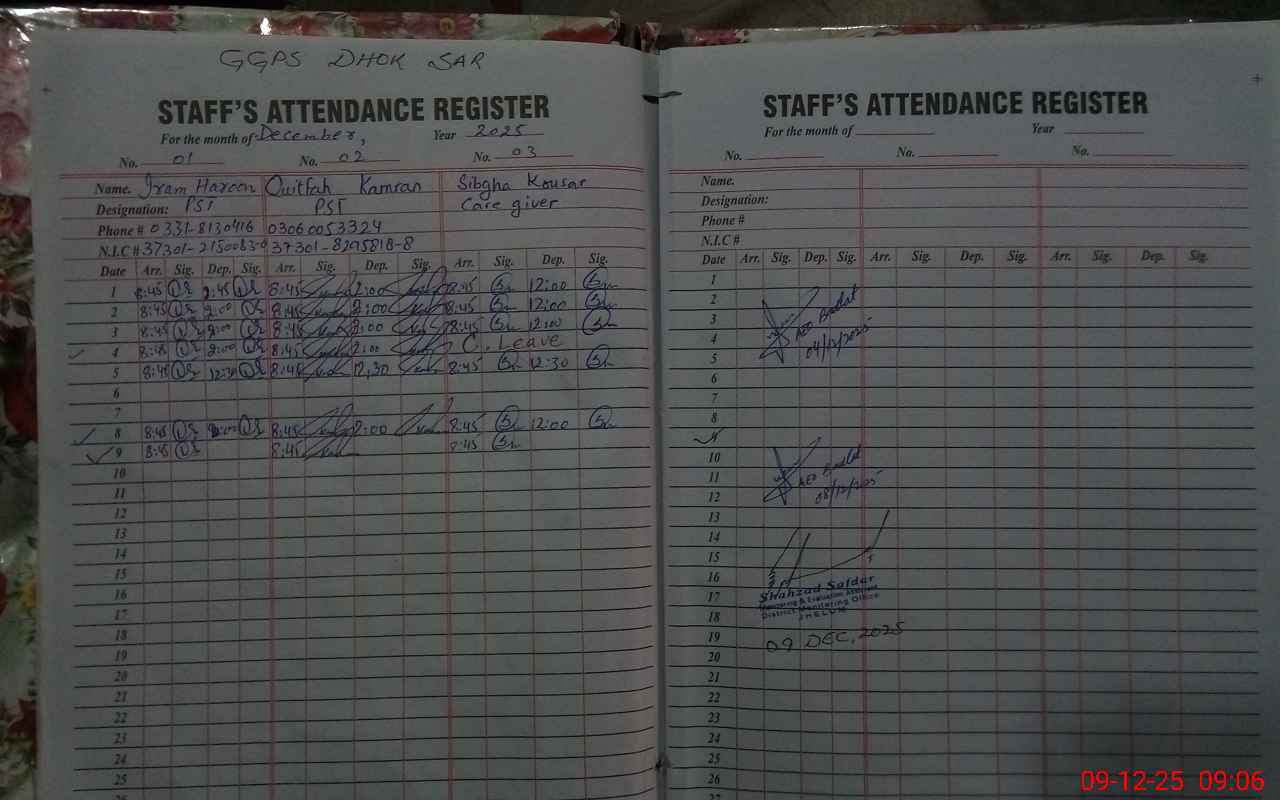 GGPS DHOK SAR
STAFF'S ATTENDANCE REGISTER
For the month of December, Year 2025
No. 01 No. 02 No. 03
Name. Iram Haroon Quitfah Kamran Sibgha Kousar
Designation: PST PST Care giver
Phone # 0331-8130416 03060053324
N.I.C # 37301-2150083-0 37301-8295818-8
Date Arr. Sig. Dep. Sig. Arr. Sig. Dep. Sig. Arr. Sig. Dep. Sig.
1 8:45 2:45 8:45 2:00 8:45 12:00
2 8:45 2:00 8:45 2:00 8:45 12:00
3 8:45 2:00 8:45 2:00 8:45 12:00
4 8:45 2:00 8:45 2:00 C. Leave
5 8:45 12:30 8:45 12,30 8:45 12:30
6
7
8 8:45 2:00 8:45 2:00 8:45 12:00
9 8:45 8:45 8:45
10
11
12
13
14
15
16
17
18
19
20
21
22
23
24
25
STAFF'S ATTENDANCE REGISTER
For the month of Year
No. No. No.
Name.
Designation:
Phone #
N.I.C #
Date Arr. Sig. Dep. Sig. Arr. Sig. Dep. Sig. Arr. Sig. Dep. Sig.
1
2
3
4 AEO
5 04/12/2025
6
7
8
9
10
11 AEO
12 08/12/2025
13
14
15
16
17 Shahzad Safdar
Monitoring & Evaluation Assistant
18 District Monitoring Office
JHELUM
19 09 DEC, 2025
20
21
22
23
24
25
26
27
09-12-25 09:06